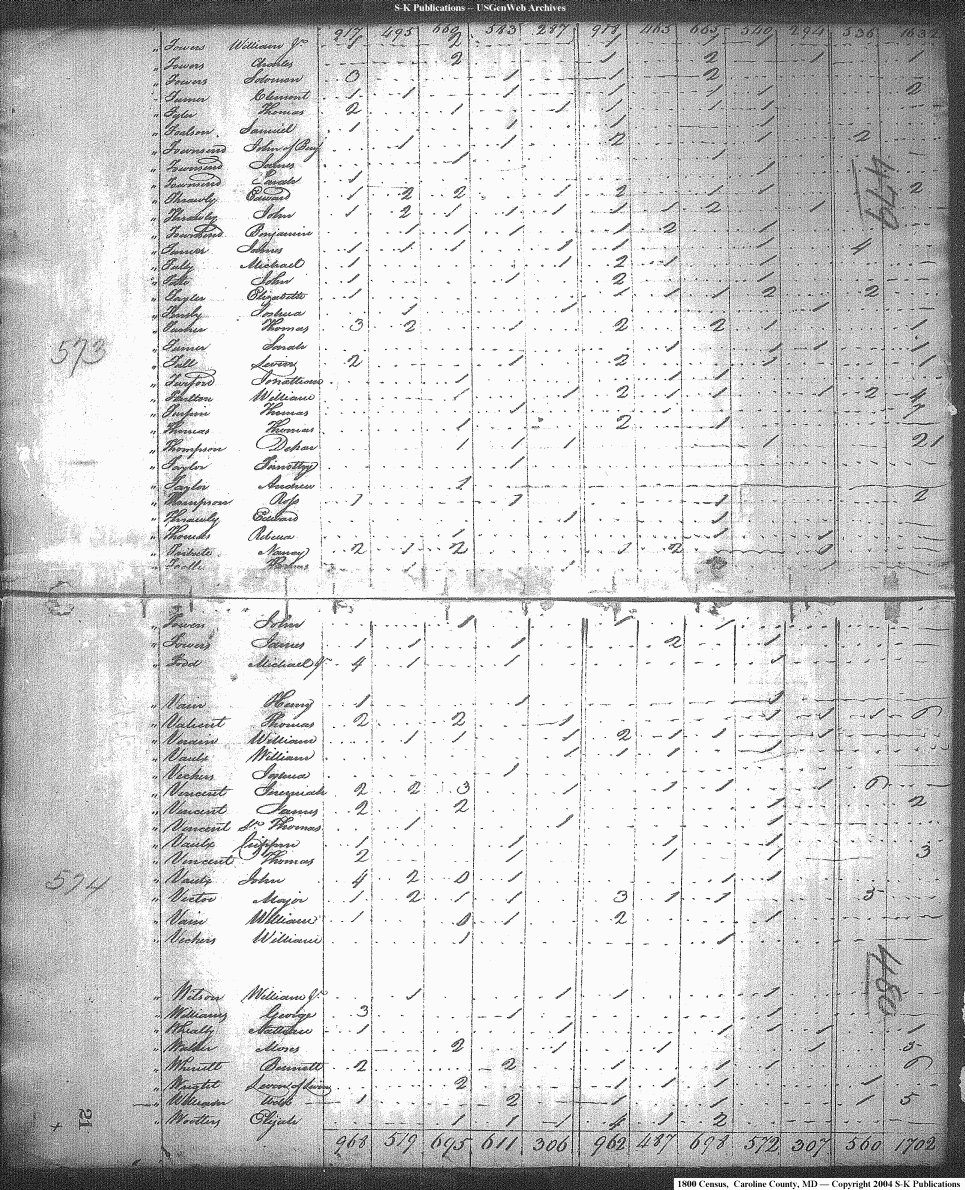 S-K Publications – USGenWeb Archives
917 495 660 583 287 918 465 665 540 294 536 1632
" Towers William Jr. 1 2 1 1 1
" Towers Charles 2 1 2 1 1
" Towers Solomon 0 1 1 2
" Turner Clement 1 1 1 1 1 2
" Tyler Thomas 2 1 1 1 1
" Toalson Samuel 1 1 1 1
" Townsend John of Benj 1 1 2 1 2
" Townsend James 1 1
" Townsend Sarah 1 1
" Thrawly Edward 1 2 2 1 2 1 1 2
479
" Thrawley John 1 2 1 1 1 1 1 2 1
" Townsend Benjamin 1 1 1 1 2 1
" James 1 1 1 1 1 1 4
" Michael 1 1 2 1 1
" John 1 1 2 1
" Tayler Elizabeth 1 1 1 1 2 2
" Joshua 1 1 1
" Turner Thomas 3 2 1 2 2 1 1
573
" Turner Sarah 1 1 1 1
" Tull Levin 2 1 2 1 1
" Turford Jonathan 1 1 1
" Tharlton William 1 1 2 1 1 1 2 4
" Turpin Thomas 1
" Thomas Thomas 1 2 1
" Thompson 1 1 1 1 21
" Taylor Timothy 1
" Taylor Andrew 1
" Thompson Ross 1 1 1 2
" Thrawly Edward 1 1
" Thomas Rebecca 1 1 1
" Nancy 2 1 2 1 2 1
" Toolle Thomas
" John 1 1 1
" Towers James 1 1 1 2 1
" Todd Michael Jr. 4 1 1 1
" Vain Henry 1 1 1
" Valient Thomas 2 2 1 1 1 1 6
" Verain William 1 1 1 2 1 1 1
" Vaulx William 1 1 1 1
" Vickers Joshua 1
" Vincent Jeremiah 2 2 3 1 1 1 6
" Vincent James 2 2 1 2
" Vincent Sr. Thomas 1 1 1
" Vaulx Griffin 1 1 1 1
" Vincent Thomas 2 1 1 1 3
574
" Vaulx John 4 2 0 1 1 1
" Victor Major 1 2 1 1 3 1 1 5
" Vain William 1 0 1 2 1
" Vickers William 1 1
480
" Wilson William Jr. 1 1 1 1
" Williams George 3 1 1
" Whealty Nathan 1 1 1 1 1 1
" Walker Moses 2 1 1 1 5
" Whiritt Bennett 2 2 1 1 1 6
" Wright Levin of Levin 2 1 1 1 1
" William 1 2 1 1 5
" Wootters Elijah 1 1 1 4 1 2
21
968 519 695 611 306 962 487 698 572 307 560 1702
1800 Census, Caroline County, MD — Copyright 2004 S-K Publications